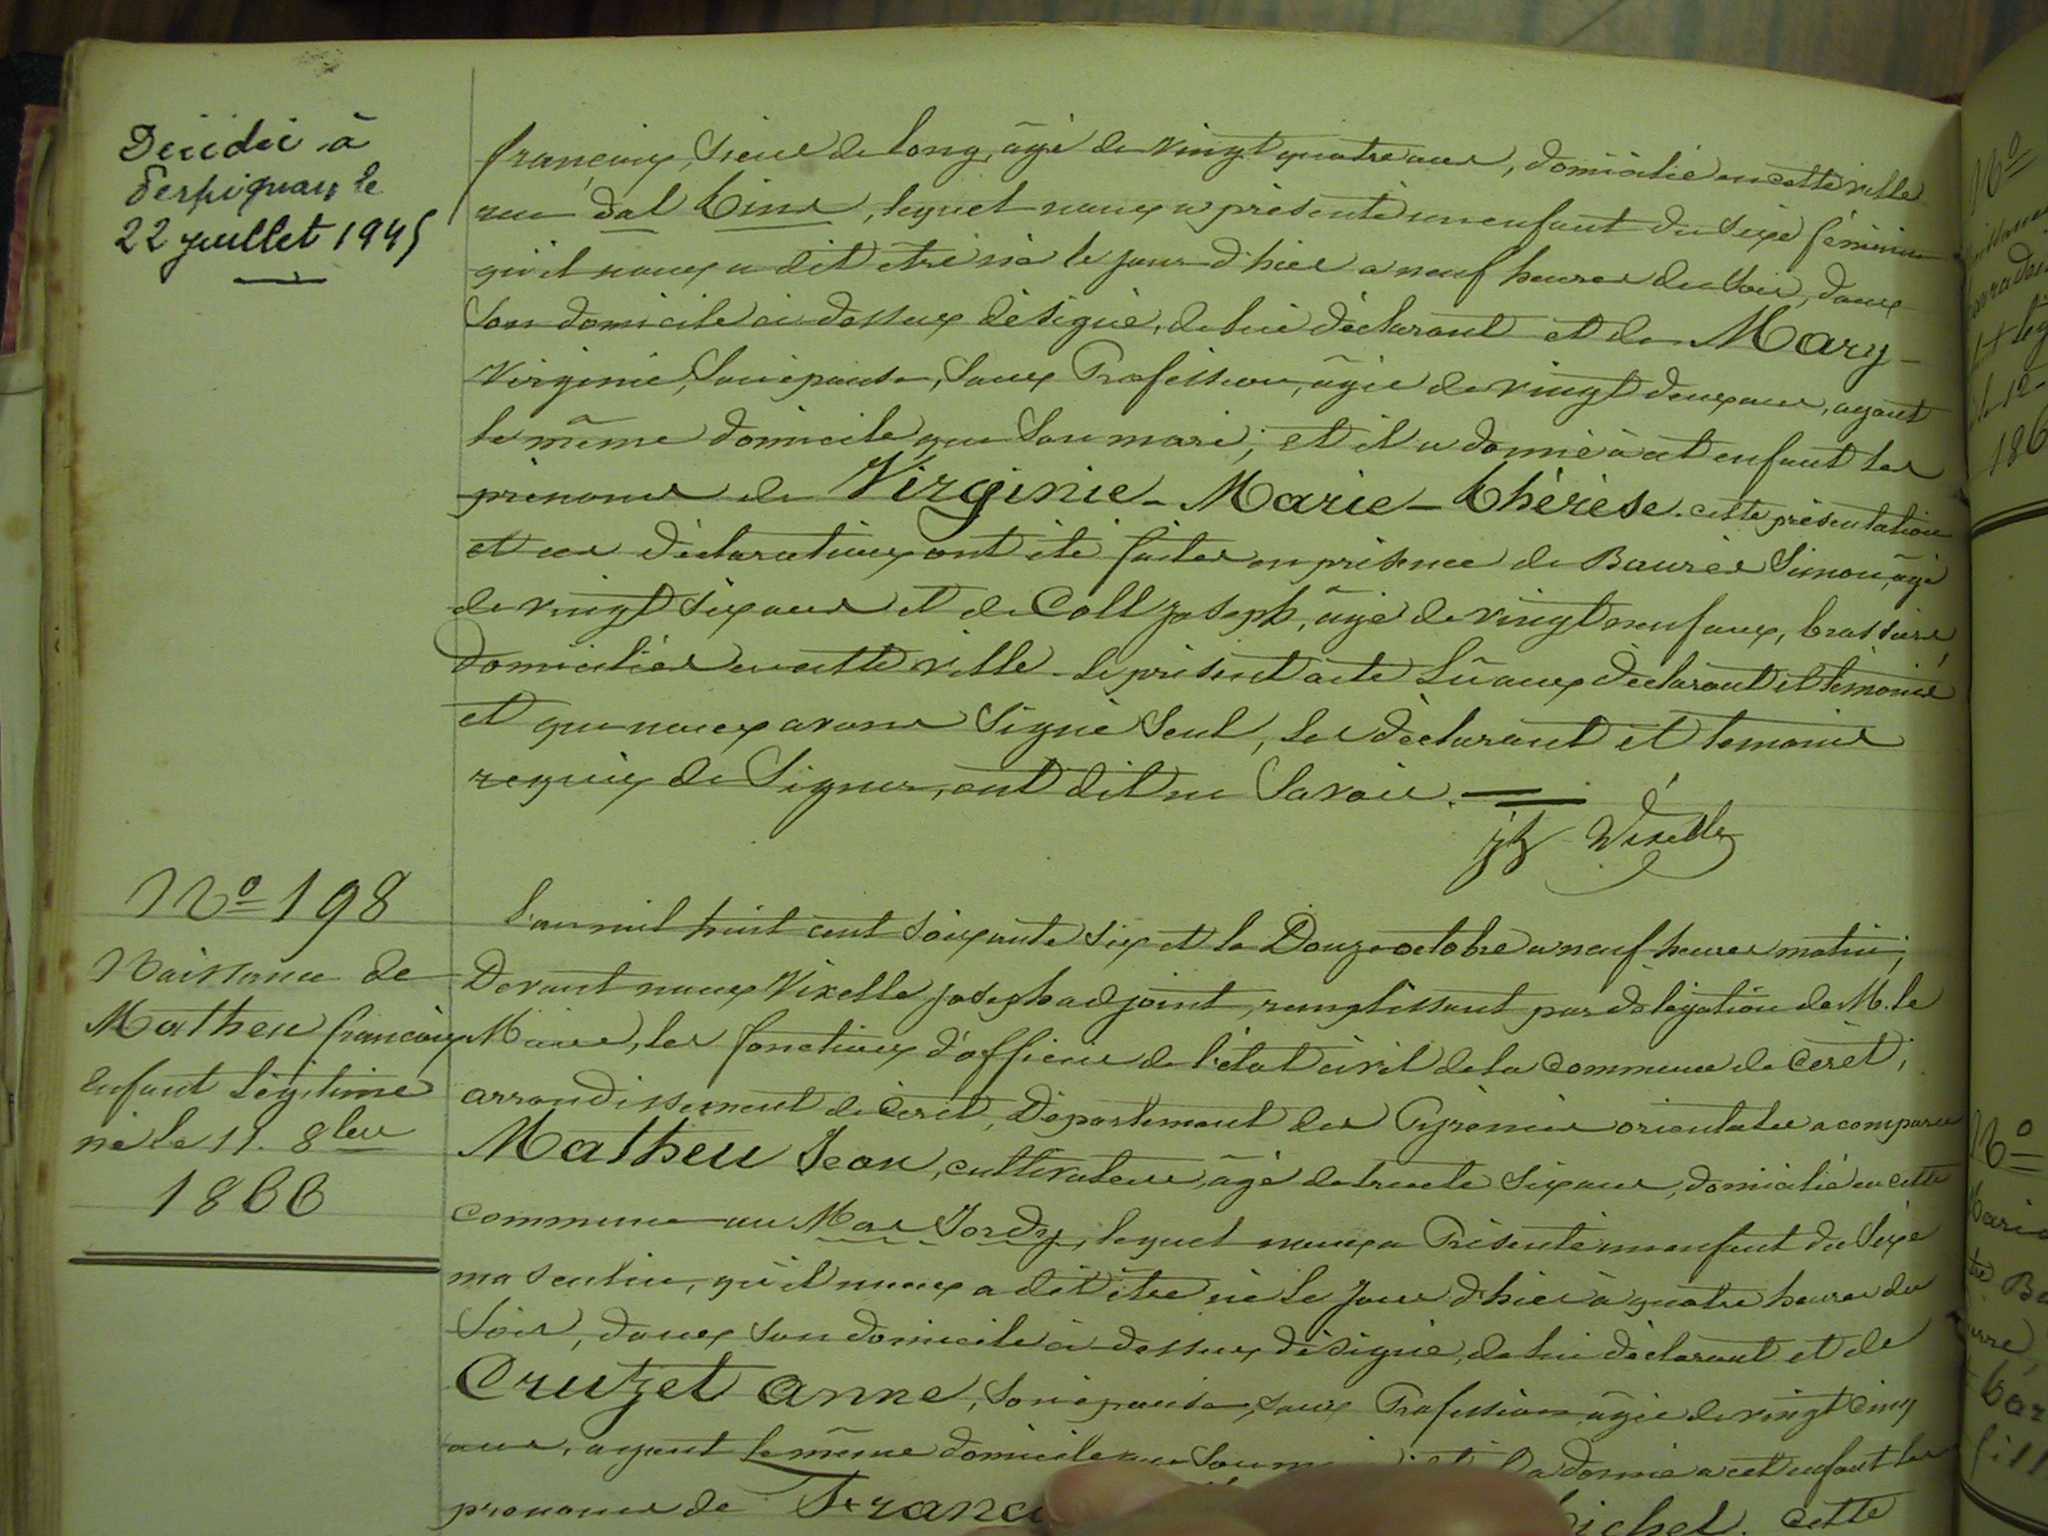 Décédée à
Perpignan le
22 juillet 1945
françois, sieur de long, âgé de vingt quatre ans, domicilié en cette ville
rue dal Cine, lequel nous a présenté un enfant du sexe féminin
qu'il nous a dit etre né le jour d'hier a neuf heures du soir, dans
son domicile ci dessus désigné, de lui déclarant et de Mary
Virginie, son épouse, sans Profession, âgée de vingt deux ans, ayant
le même domicile que son mari; et il a donné à cet enfant les
prénoms de Virginie-Marie-thérèse. cette présentation
et ces déclarations ont été faites en présence de Baurès Simon, âgé
de vingt six ans et de Coll joseph, âgé de vingt neuf ans, brassiers,
domiciliés en cette ville. le présent acte lû aux déclarant et témoins
et que nous avons signé seul, les déclarant et temoins
requis de signer, ont dit ne savoir.
jh Vixelle
Nº 198
Naissance de
Matheu françois
enfant légitime
né le 11. 8bre
1866
L'an mil huit cent soixante six et le Douze octobre a neuf heures matin;
Devant nous Vixelle joseph adjoint, remplissant par délégation de M. le
Maire, les fonctions d'officier de l'état civil de la commune de Céret,
arrondissement de Céret, Département des Pyrénées orientales a comparu
Matheu Jean, cultivateur, âgé de trente six ans, domicilié en cette
commune au Mas Jordy, lequel nous a Présenté un enfant du sexe
masculin, qu'il nous a dit être né le jour d'hier à quatre heures du
soir, dans son domicile ci-dessus désigné, de lui déclarant et de
Cruzet anne, son épouse, sans Profession, âgée de vingt cinq
ans, ayant le même domicile que son a donné a cet enfant les
prénoms de Cette
Nº
186
Nº